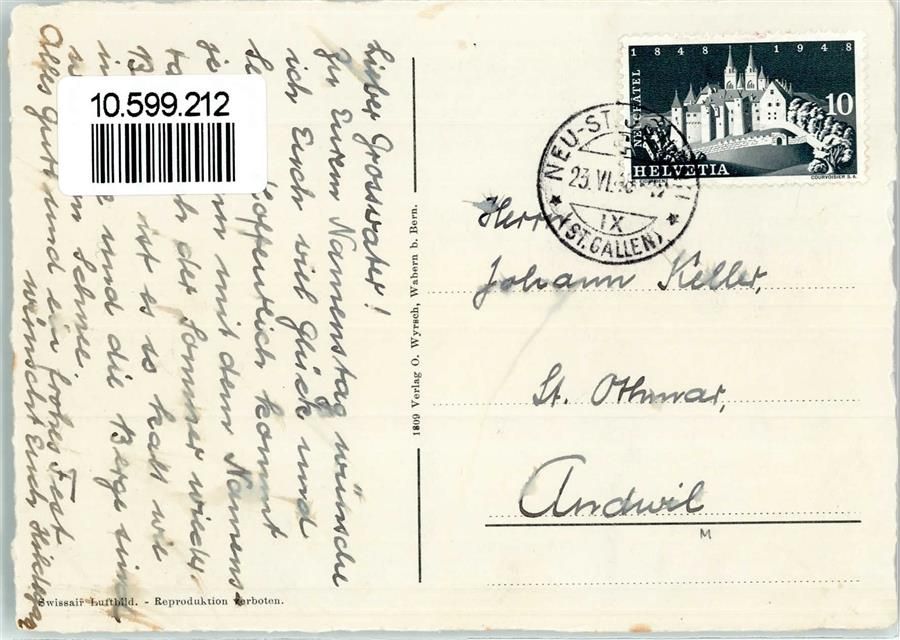 10.599.212
Lieber Grossvater!
Zu Eurem Namenstag wünsche
ich Euch viel Glück und
Hoffentlich kommt
mit dem Namens-
der Sommer wieder.
ist es so kalt wie
und die Berge sind
Schnee.
Alles Gute und ein frohes Fest
wünscht Euch
1809 Verlag O. Wyrsch, Wabern b. Bern.
Swissair Luftbild. - Reproduktion verboten.
1848 1948
NEUCHÂTEL
10
HELVETIA
COURVOISIER S.A.
NEU-ST.
23.VI.
IX
(ST. GALLEN)
Herrn
Johann Keller,
St. Othmar,
Andwil
M